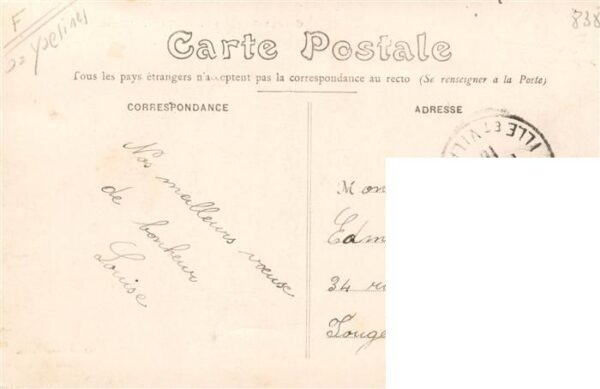 F
Yvelines
838
Carte Postale
Tous les pays étrangers n'acceptent pas la correspondance au recto (Se renseigner a la Poste)
CORRESPONDANCE
ADRESSE
ILLE ET VIL
Nos meilleurs vœux
de bonheur
Louise
Mon
Edm
34 ru
Fouge